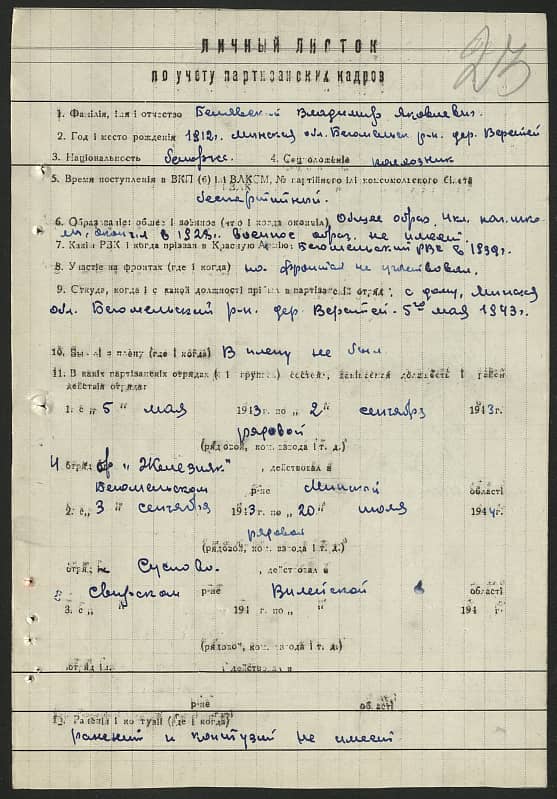 ЛИЧНЫЙ ЛИСТОК
по учету партизанских кадров
23
1. Фамілія, імя і отчество Белявский Владимир Яковлевич.
2. Год і место рожденія 1912 г. Минская обл. Бегомельск. р-н. дер. Веретей
3. Національность белорус. 4. Соц.положеніе колхозник
5. Время поступленія в ВКП (б) ілі ВЛКСМ, № партійного ілі комсомольского білета
беспартийный.
6. Образованіе: общее і военное (что і когда окончіл) Общее образ. 4 кл. нач. шко-
лы. окончил в 1928 г. военное образ. не имеет.
7. Какім РВК і когда прізван в Красную Армію: Бегомельский РВК в 1939 г.
8. Участіе на фронтах (где і когда) на фронтах не участвовал.
9. Откуда, когда і с какой должності прібыл в партізанскій отряд: с дому, Минская
обл. Бегомельский р-н. дер. Веретей. 5го мая 1943 г.
10. Был лі в плену (где і когда) В плену не был
11. В какіх партізанскіх отрядах (і группах) состоял, занімаемая должность і район
действія отряда:
1. с „ 5 “ мая 1943 г. по „ 2 “ сентября 1943 г.
рядовой
(рядовой, ком. взвода і т. д.)
отряд бр. „Железняк“, действовал в
Бегомельском р-не Минской області
2. с „ 3 “ сентября 1943 г. по „ 20 “ июля 1944 г.
рядовой
(рядовой, ком. взвода і т. д.)
отряд Суслова, действовал в
Свирском р-не Вилейской області
3. с „ “ 194 г. по „ “ 194 г.
(рядовой, ком. взвода і т. д.)
отряд ім. действовал в
р-не області
13. Раненія і контузіі (где і когда)
ранений и контузий не имеет